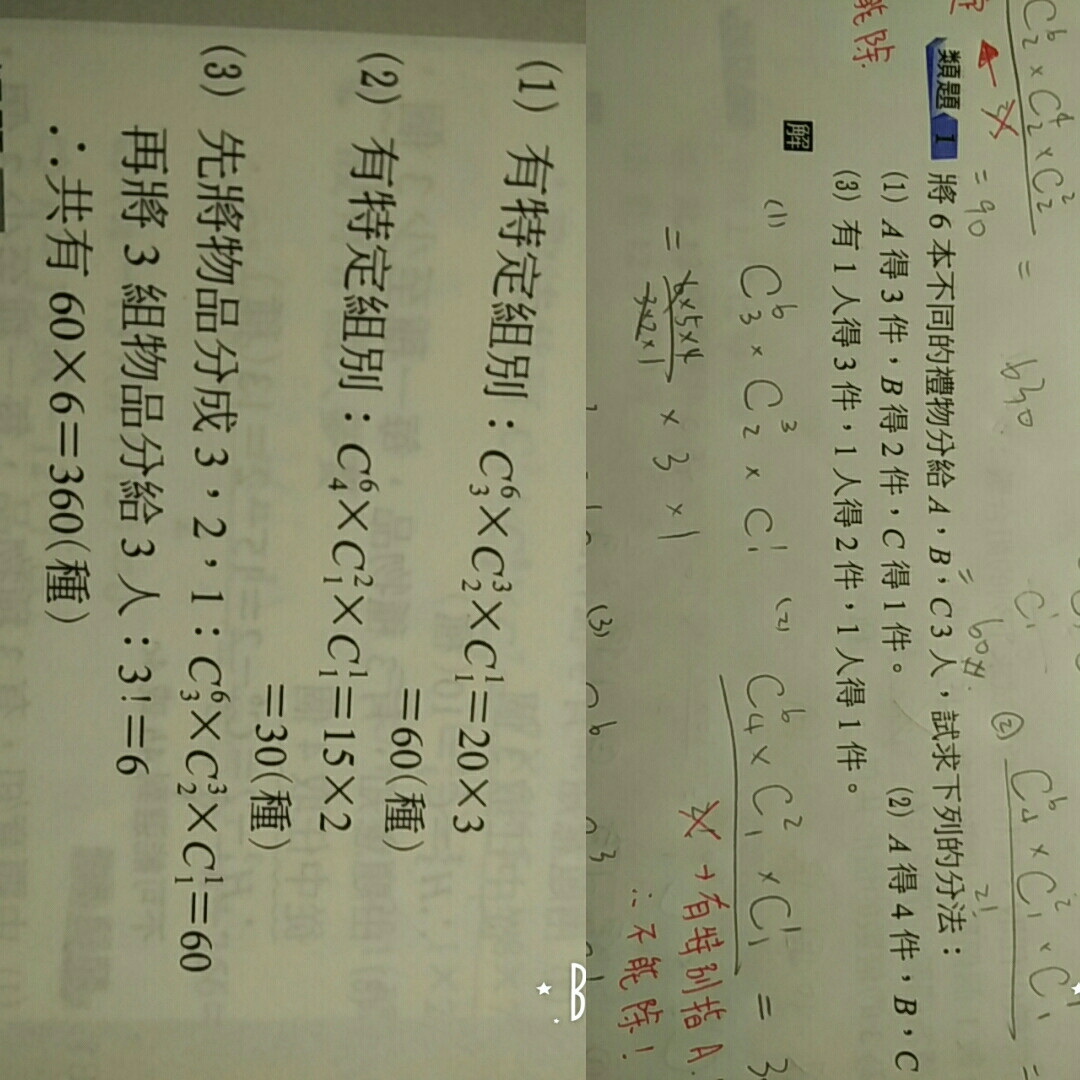 (1) 有特定組別：C⁶₃×C³₂×C¹₁=20×3
=60(種)
(2) 有特定組別：C⁶₄×C²₁×C¹₁=15×2
=30(種)
(3) 先將物品分成 3，2，1：C⁶₃×C³₂×C¹₁=60
再將 3 組物品分給 3 人：3!=6
∴共有 60×6=360(種)
C⁶₂×C⁴₂×C²₂
=90
能除
類題 1 將 6 本不同的禮物分給 A，B，C 3 人，試求下列的分法：
(1) A 得 3 件，B 得 2 件，C 得 1 件。 (2) A 得 4 件，B，C
(3) 有 1 人得 3 件，1 人得 2 件，1 人得 1 件。
解
(1) C⁶₃ × C³₂ × C¹₁
= 6×5×4 / 3×2×1 × 3 × 1
(2) C⁶₄ × C²₁ × C¹₁ =
→有特別指A
∴不能除！
(3)
(2) C⁶₄ × C²₁ × C¹₁ =
2!